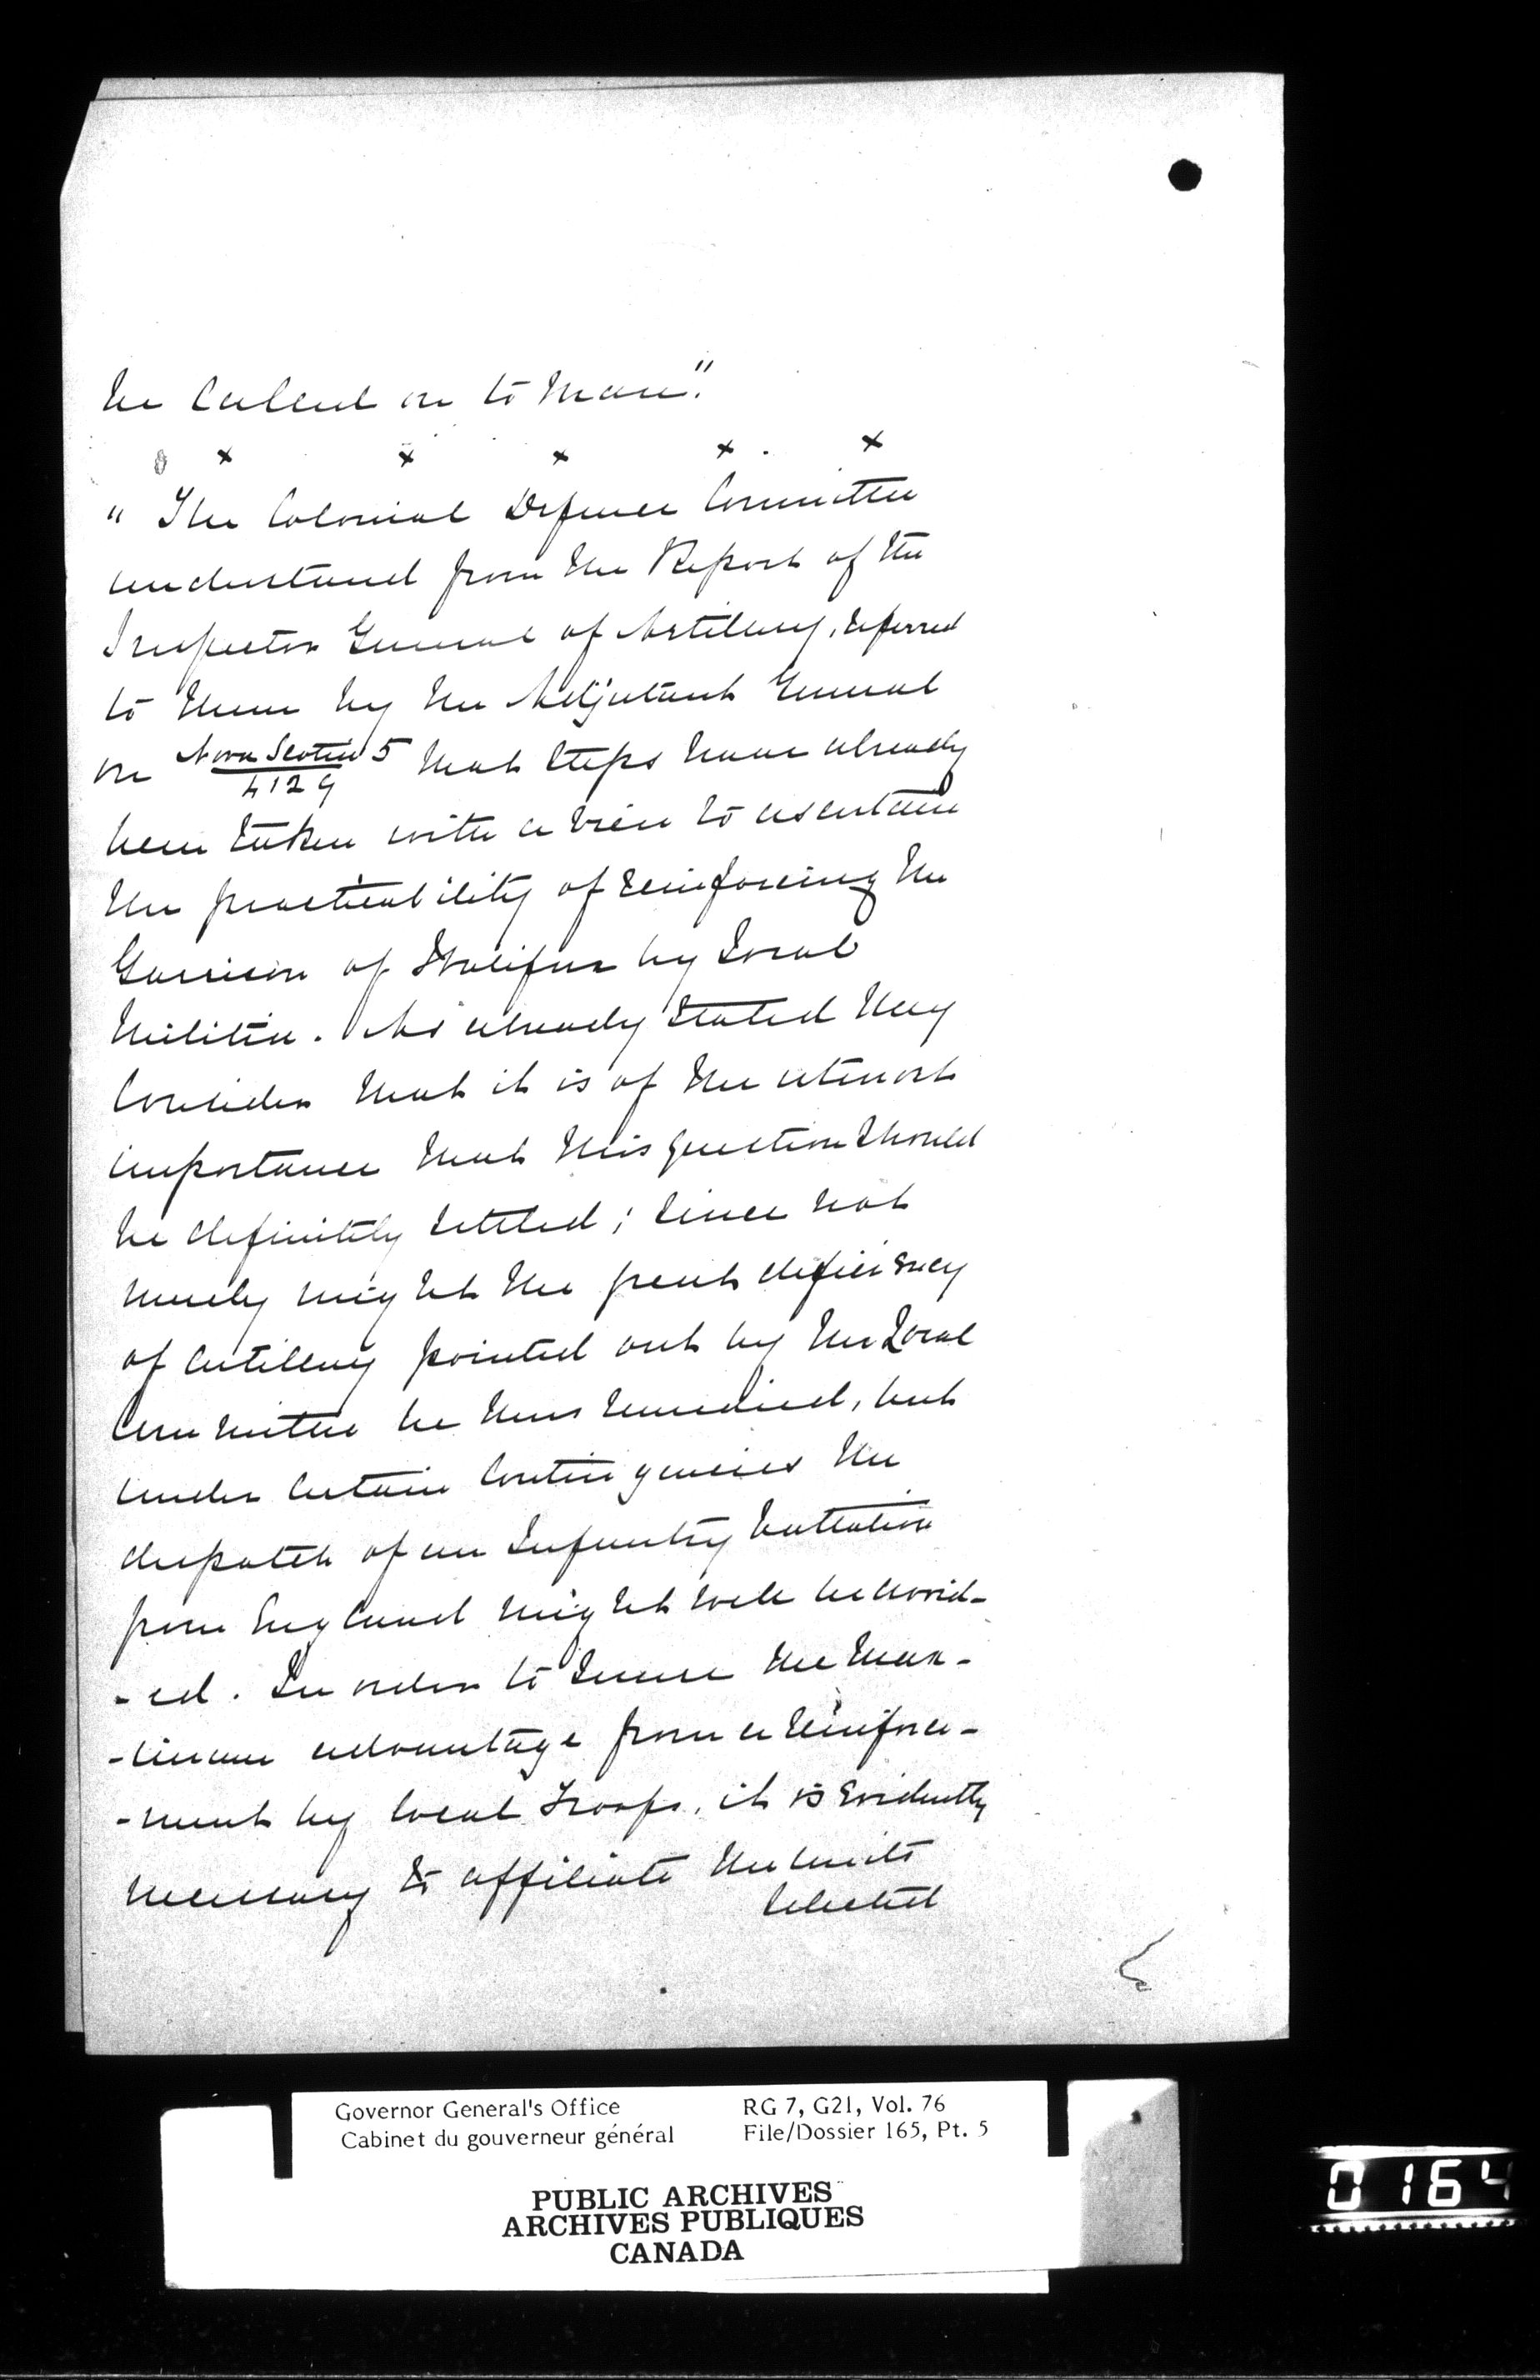 be called on to man."
x x x x x
" The Colonial Defence Committee
understand from the Report of the
Inspector General of Artillery, referred
to them by the Adjutant General
on Nova Scotia 5 that steps have already
4129
been taken with a view to ascertain
the practicability of reinforcing the
Garrison of Halifax by Local
Militia. As already stated they
consider that it is of the utmost
importance that this question should
be definitely settled; since not
merely might the great deficiency
of Artillery pointed out by the Local
Committee be thus remedied, but
under certain contingencies the
despatch of an Infantry battalion
from England might well be avoid-
-ed. In order to secure the max-
-imum advantage from a reinforce-
-ment by local troops, it is evidently
necessary to affiliate the units
selected
Governor General's Office
Cabinet du gouverneur général
RG 7, G21, Vol. 76
File/Dossier 165, Pt. 5
PUBLIC ARCHIVES
ARCHIVES PUBLIQUES
CANADA
0164